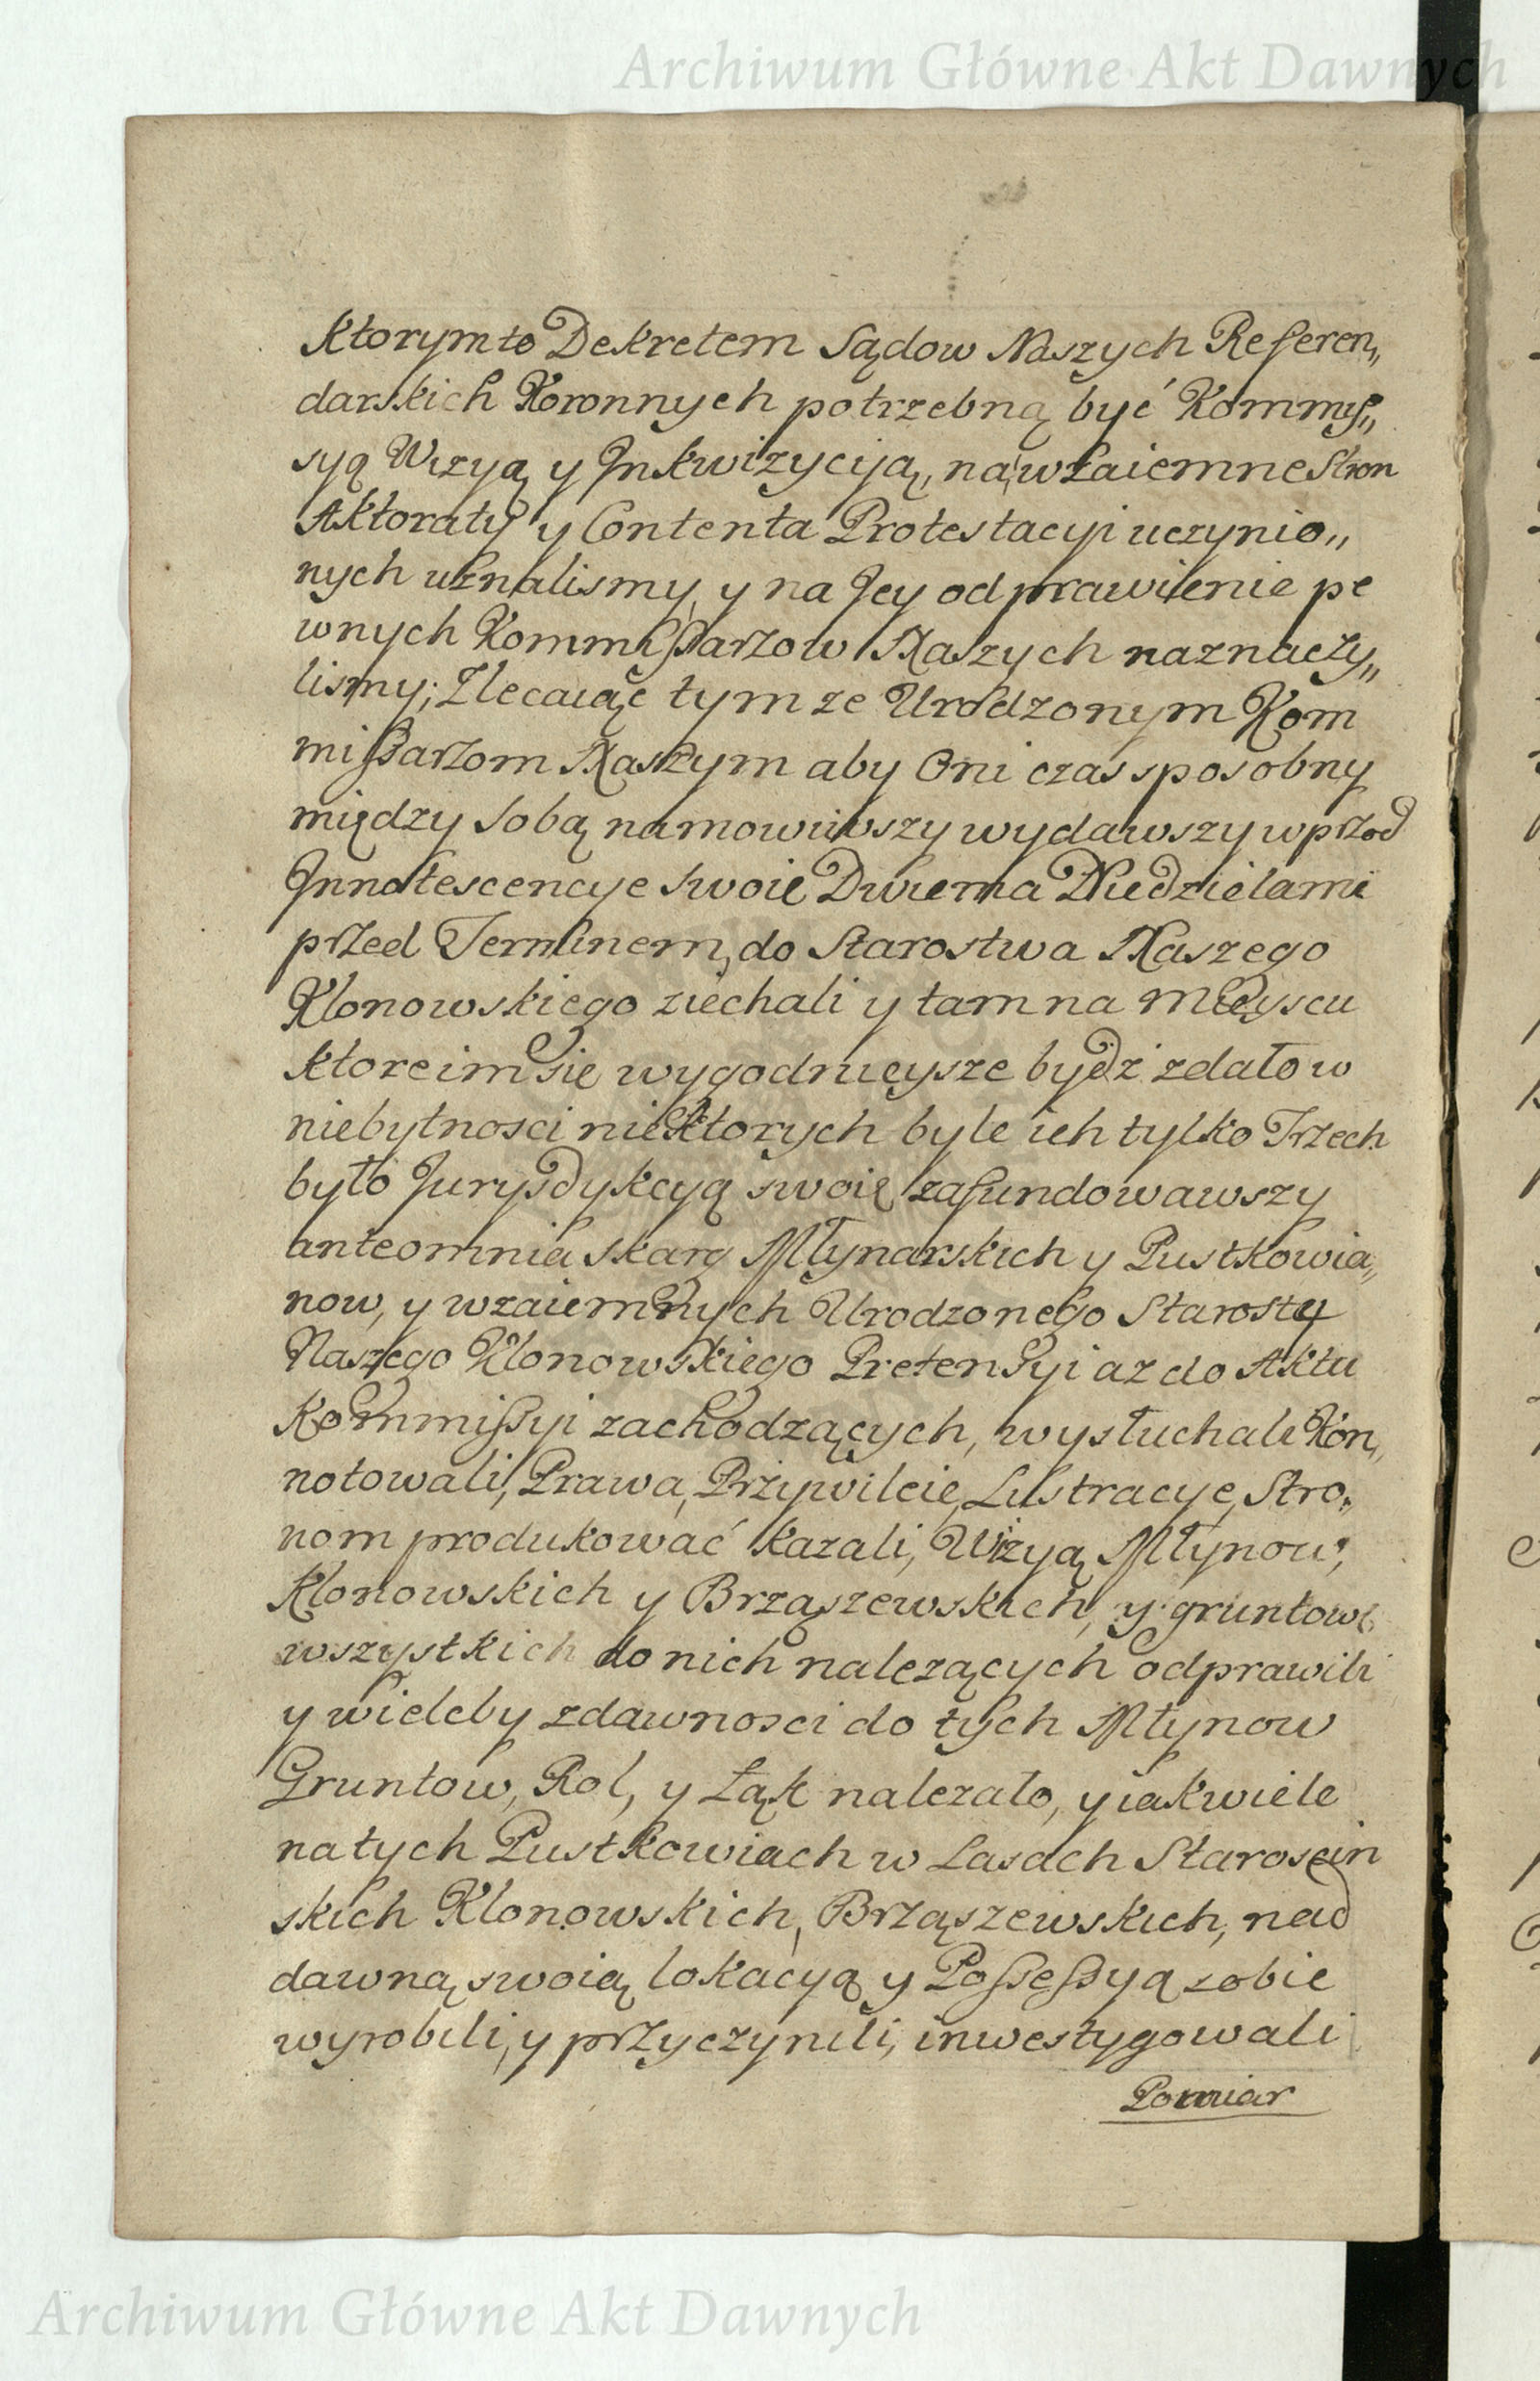 Archiwum Główne Akt Dawnych
Ktorymto Dekretem Sądow Naszych Referen„
darskich Koronnych potrzebną być Kommis„
syą Wizyą y Inkwizycyią, na wzaiemne Stron
Aktoraty y Contenta Protestacyi uczynio„
nych uznalismy, y na Jey odprawienie pe
wnych Kommissarzow Naszych naznaczy„
lismy; Zlecaiąc tym ze Urodzonym Kom
missarzom Naszym aby Oni czas sposobny
między sobą namowiwszy wydawszy wprzod
Innotescencye swoie Dwiema Niedzielami
przed Terminem, do Starostwa Naszego
Klonowskiego ziechali y tam na Mieyscu
ktore im się wygodnieysze bydź zdało w
niebytnosci niektorych byle ich tylko Trzech
było Jurysdykcyą swoię zafundowawszy
anteomnia skarg Młynarskich y Pustkowia„
now, y wzaiemnych Urodzonego Starosty
Naszego Klonowskiego Pretensyi az do Aktu
Kommissyi zachodzących, wysłuchali Kon„
notowali, Prawa, Przywileie, Lustracye, Stro„
nom produkować kazali, Wizyą Młynow,
Klonowskich y Brząszewskich, y gruntow
wszystkich do nich nalezących odprawili
y wieleby zdawnosci do tych Młynow
Gruntow, Rol, y Łąk nalezało, y iak wiele
na tych Pustkowiach w Lasach Staroscin
skich Klonowskich, Brząszewskich, nad
dawną swoią lokacyą y Possessyą sobie
wyrobili, y przyczynili, inwestygowali
Pomiar
Archiwum Główne Akt Dawnych